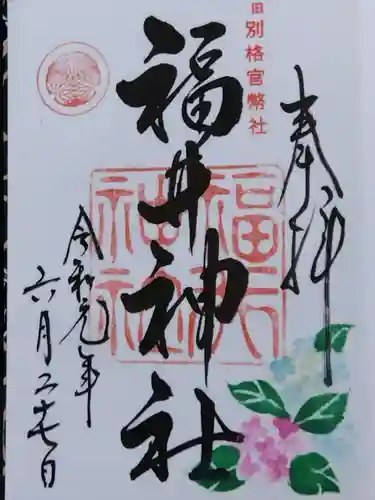 奉拝
旧別格官幣社
福井神社
福井神社
令和元年
六月二十七日